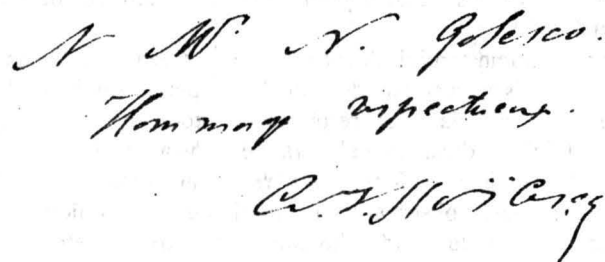 A Mr. N. Golesco.
Hommage respectueux.